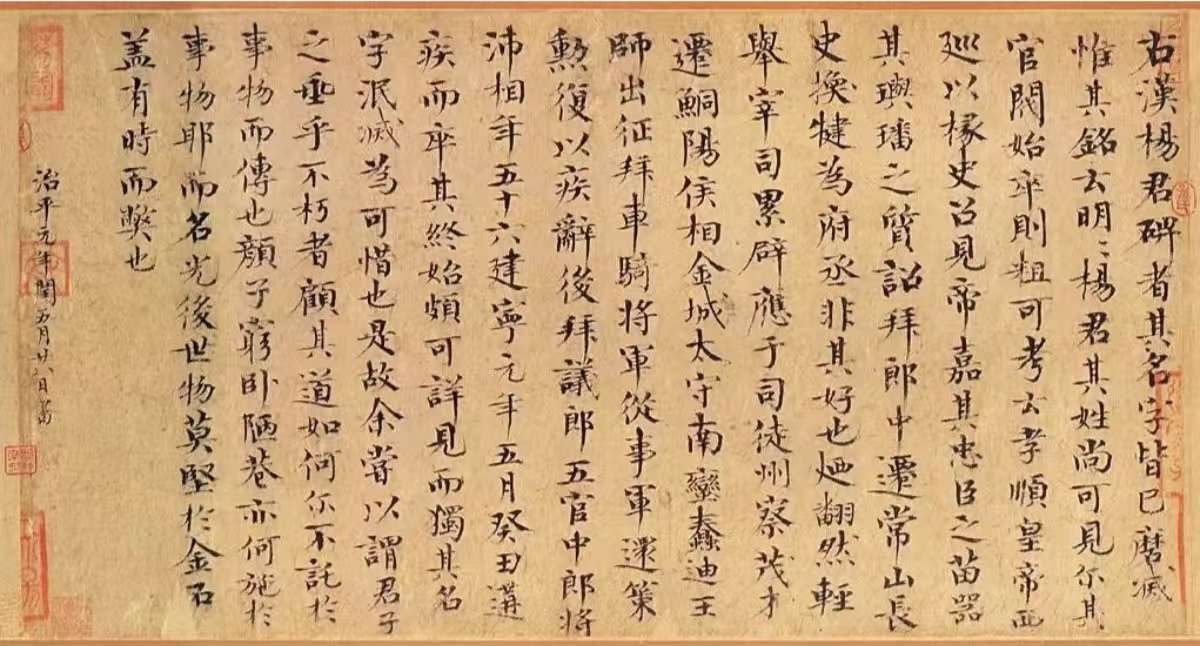 右漢楊君碑者其名字皆已磨滅
惟其銘云明〻楊君其姓尚可見尓其
官閥始卒則粗可考云孝順皇帝西
巡以椽史召見帝嘉其忠臣之苗器
其璵璠之質詔拜郎中遷常山長
史換犍為府丞非其好也廼翻然輕
舉宰司累辟應于司徒州察茂才
遷鮦陽侯相金城太守南蠻蠢迪王
師出征拜車騎將軍從事軍還策
勲復以疾辭後拜議郎五官中郎將
沛相年五十六建寧元年五月癸丑遘
疾而卒其終始頗可詳見而獨其名
字泯滅為可惜也是故余嘗以謂君子
之垂乎不朽者顧其道如何尓不託於
事物而傳也顏子窮卧陋巷亦何施於
事物耶而名光後世物莫堅於金石
盖有時而弊也
治平元年閏五月廿八日書